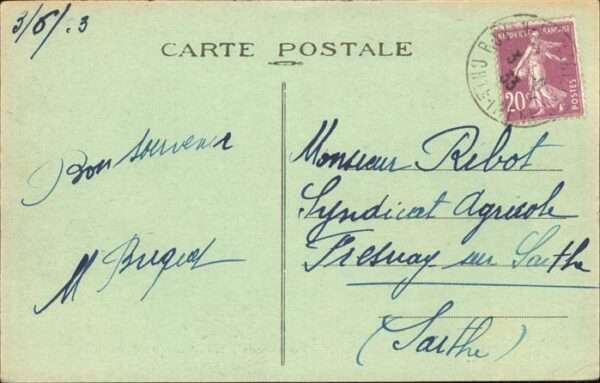 3/6/.3
CARTE POSTALE
RÉPUBLIQUE FRANÇAISE
20c
POSTES
33
Bon souvenir
M
Monsieur Ribot
Syndicat Agricole
Fresnay sur Sarthe
(Sarthe)